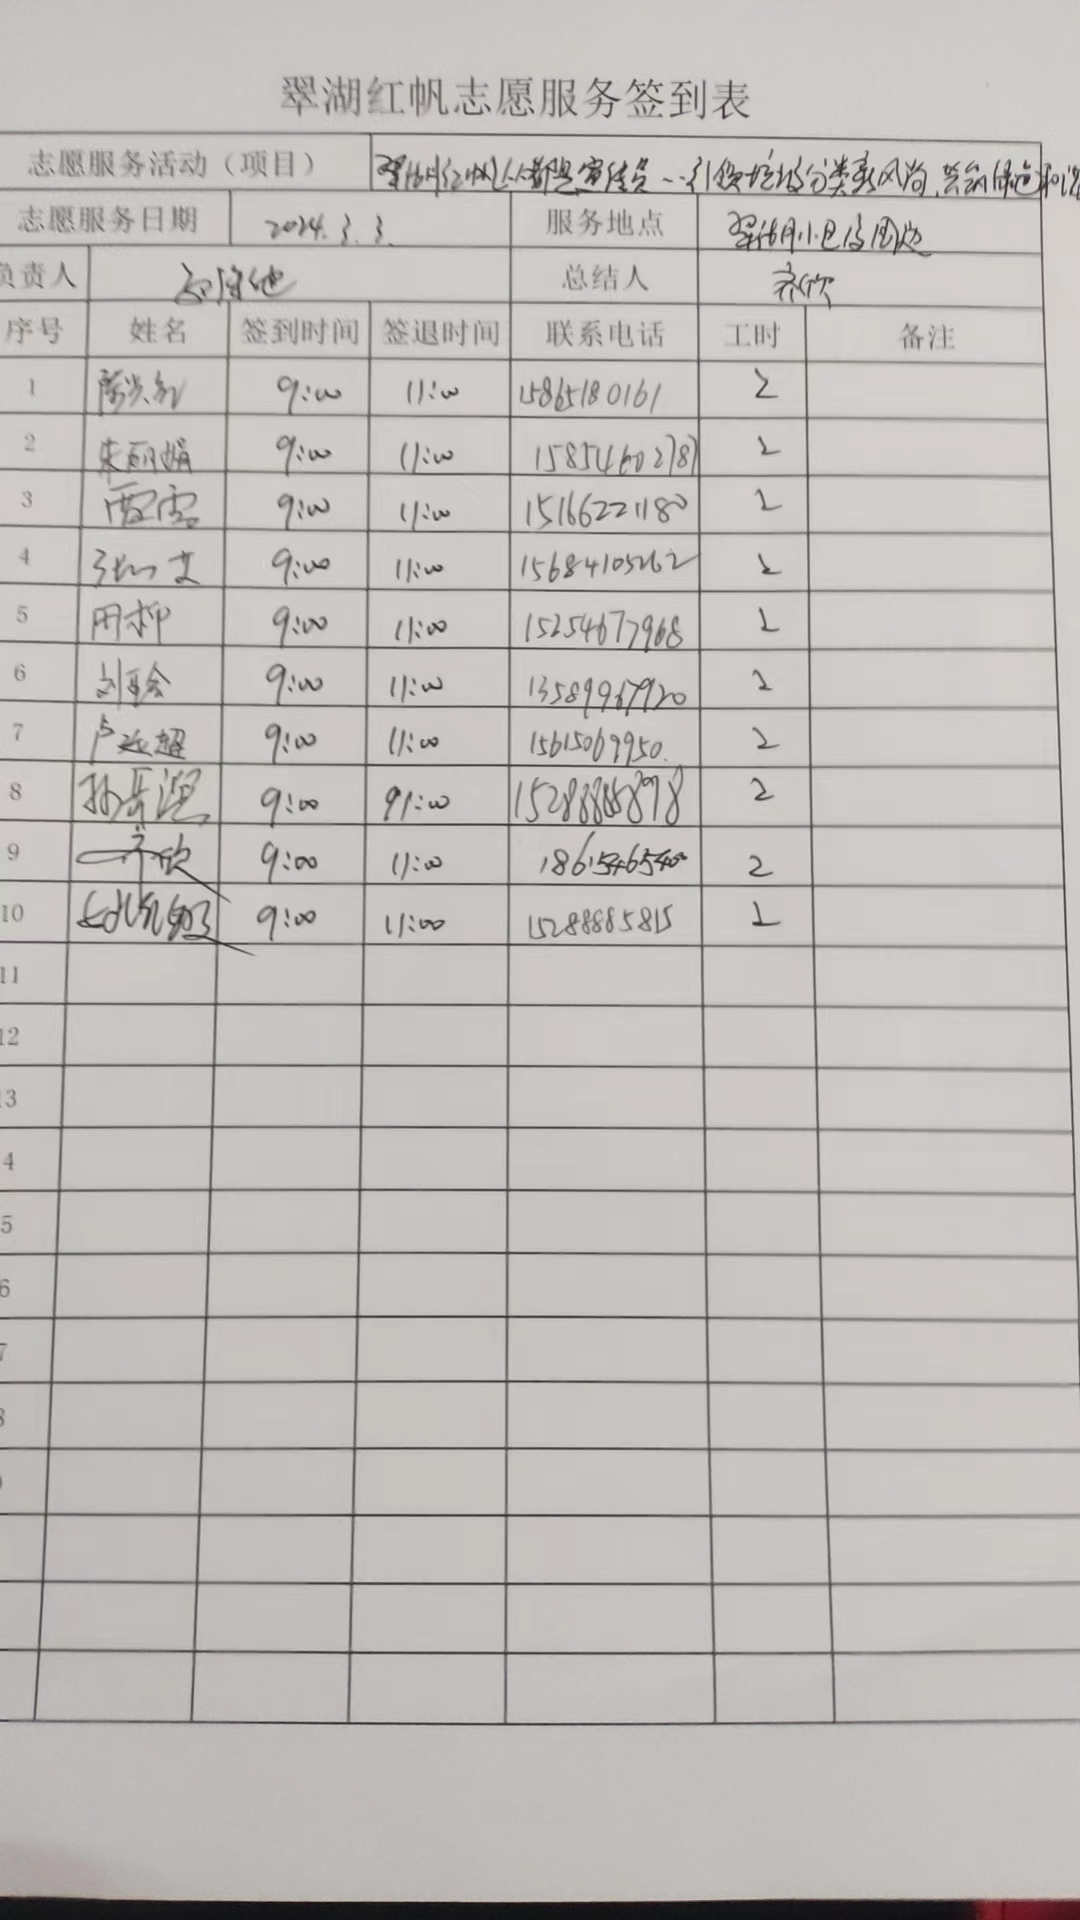 翠湖红帆志愿服务签到表
志愿服务活动（项目） 翠湖红帆人人都是宣传员--引领垃圾分类新风尚,共创绿色和谐
志愿服务日期 2024.3.3. 服务地点 翠湖小区及周边
负责人 总结人 齐欣
序号 姓名 签到时间 签退时间 联系电话 工时 备注
1 9:00 11:00 15865180161 2
2 朱丽娟 9:00 11:00 15854602787 2
3 贾雪 9:00 11:00 15166221180 2
4 9:00 11:00 15684105262 2
5 周柳 9:00 11:00 15254677968 2
6 刘 会 9:00 11:00 13589967920 2
7 卢 超 9:00 11:00 15615069950. 2
8 孙 9:00 11:00 2
9 齐欣 9:00 11:00 18615465400 2
10 9:00 11:00 15288885815 2
11
12
13
4
5
6
7
8